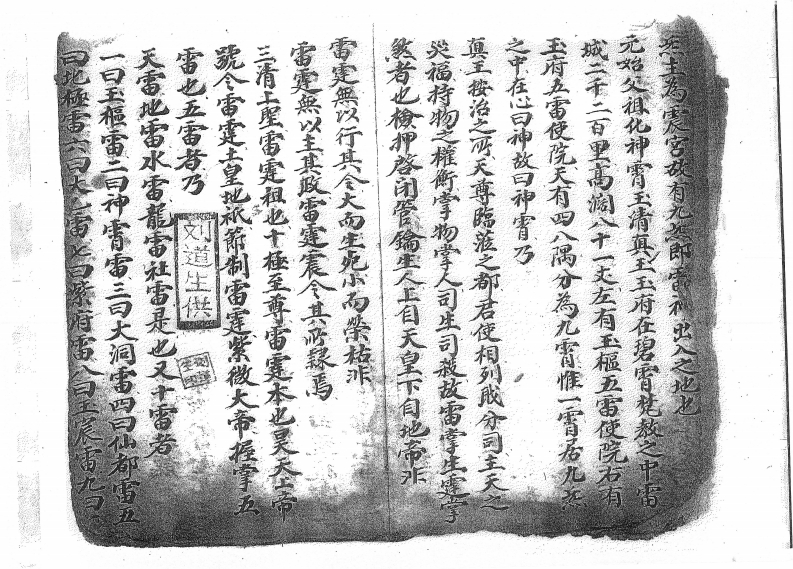 炁主為震宮故有九炁即雷神出入之地也
元始父祖化神霄玉清真王玉府在碧霄梵炁之中雷
城二千二百里高濶八十一丈左有玉樞五雷使院右有
玉府五雷使院天有四八隅分為九霄惟一霄居九炁
之中在心曰神故曰神霄乃
真王按治之所天尊臨蒞之都君使相列職分司主天之
災福持物之權衡掌物掌人司生司殺故雷掌生霆掌
煞者也檢押啓閉管鑰生人上自天皇下自地帝非
雷霆無以行其令大而生死小而榮枯非
雷霆無以主其政雷霆震令其所隸焉
三清上聖雷霆祖也十極至尊雷霆本也昊天上帝
號令雷霆土皇地祇節制雷霆紫微大帝握掌五
雷也五雷者乃
天雷地雷水雷龍雷社雷是也又十雷者
一曰玉樞雷二曰神霄雷三曰大洞雷四曰仙都雷五
曰地極雷六曰太乙雷七曰紫府雷八曰玉宸雷九曰
刘道生供